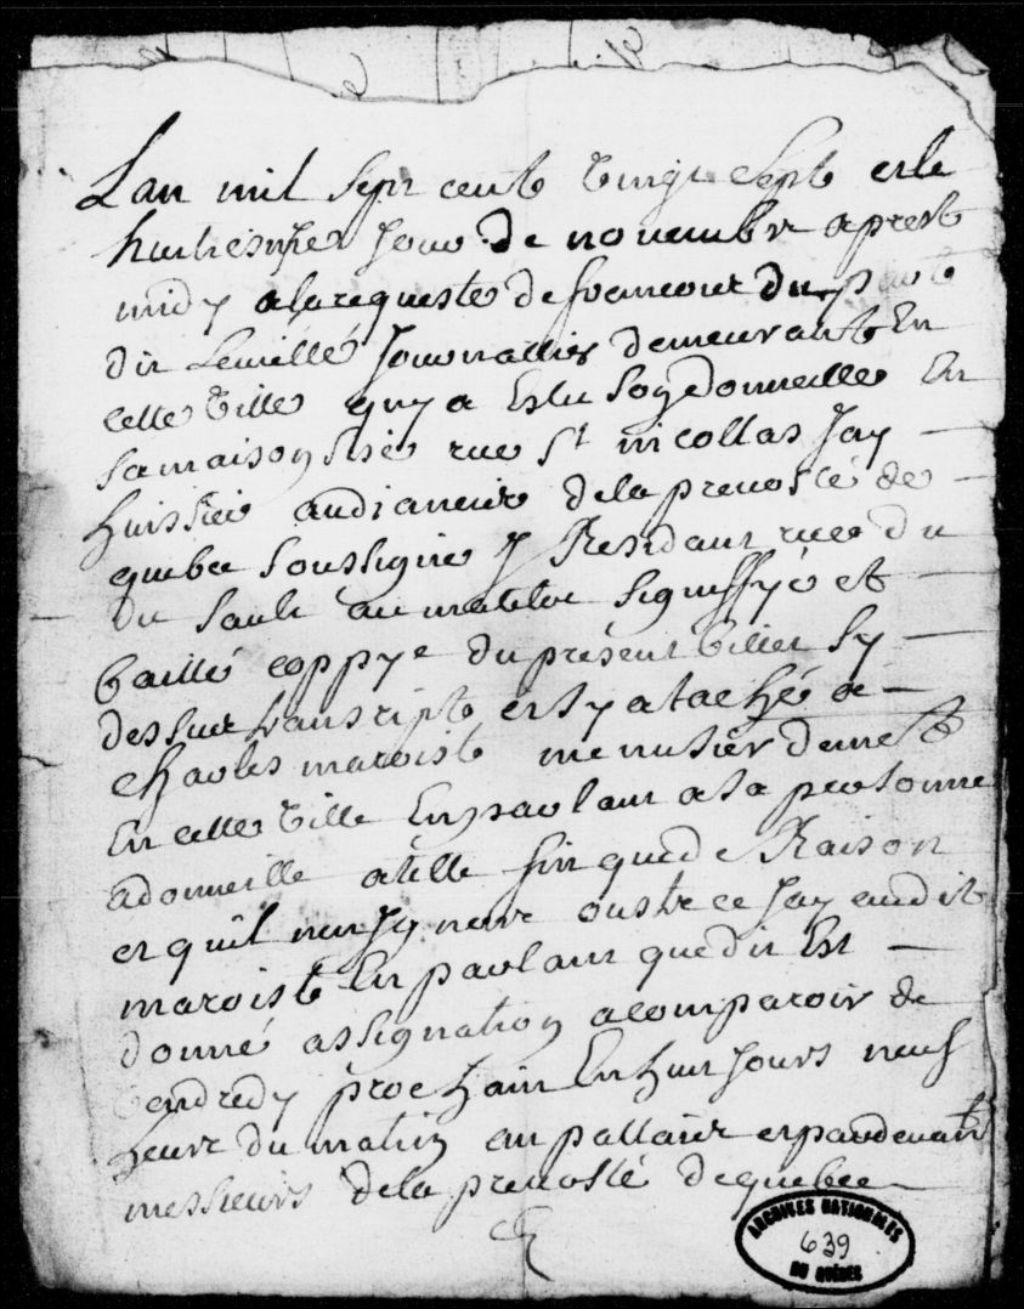 Lan mil sept cent vingt sept et le
huitiesme jour de novembre aprest
midy a la requeste de francois du
dit Leveillé Journallier demeurant En
cette ville quy a Eslu son domicille En
sa maison size rue St nicollas Jay
huissier audiancier de la prevosté de
quebec soussigné y Residant rue du
du sault au matelot signiffyé et
baillé coppye du présent billet sy
dessus transcript et sy ataché a
charles maroist menusier demt
En cette ville En parlant a sa personne
a domicille a telle fin que de Raison
et quil nen Ignore oustre ce Jay audit
maroist En parlant que dit Est
donné assignation a comparoir de
vendredy prochain En huit Jours neuf
heure du matin au pallais et pardevant
messieurs de la prevosté de quebec
ARCHIVES NATIONALES
639
DU QUÉBEC